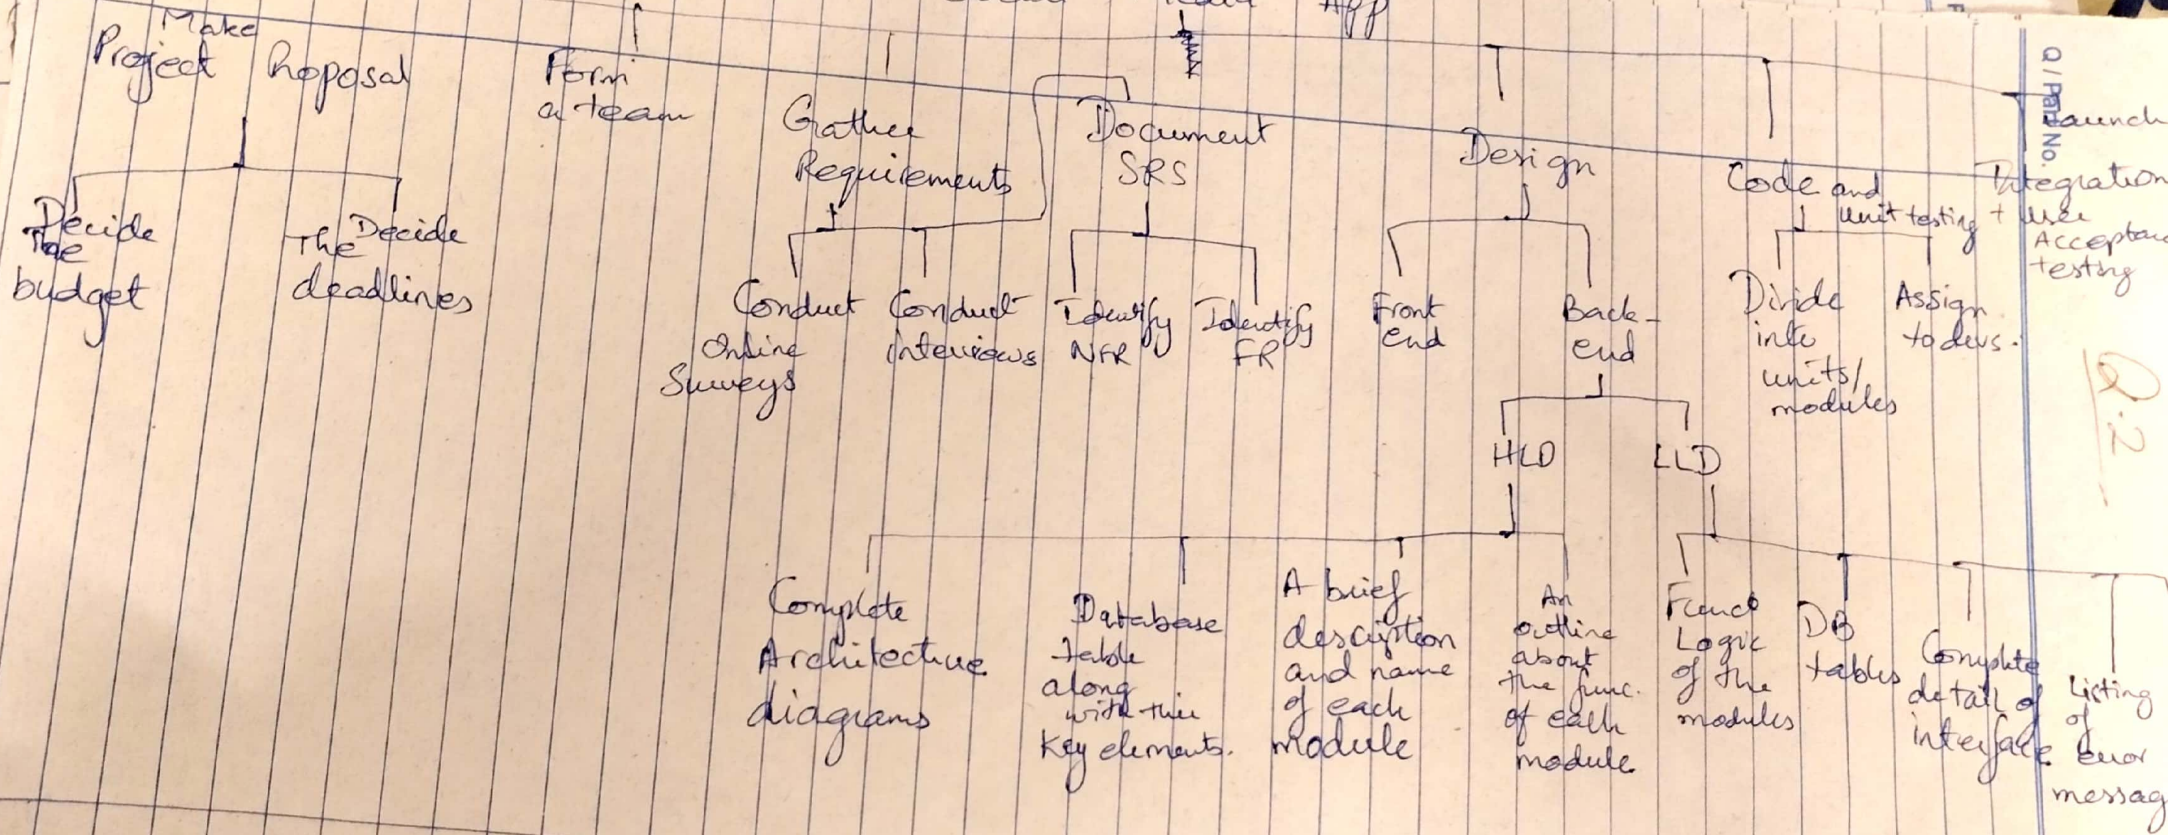 App
Make
Project Proposal
Form
a team
Gather
Requirements
Document
SRS
Design
Code and
unit testing
Launch
Integration
+ user
Acceptan
testing
Q / Part No.
Decide
The
budget
Decide
The
deadlines
Conduct
Online
Surveys
Conduct
interviews
Identify
NFR
Identify
FR
Front
end
Back-
end
Divide
into
units/
modules
Assign
to devs.
Q.2
HLD
LLD
Complete
Architecture
diagrams
Database
table
along
with their
key elements.
A brief
description
and name
of each
module
An
outline
about
the func.
of each
module.
Logic
of the
modules
DB
tables
Complete
detail of
interface
Listing
of
error
messag